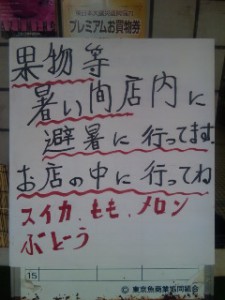 プレミアムお買物券
果物等
暑い間店内に
避暑に行ってます。
お店の中に行ってね
スイカ、もも、メロン
ぶどう
15
©東京魚商業協同組合